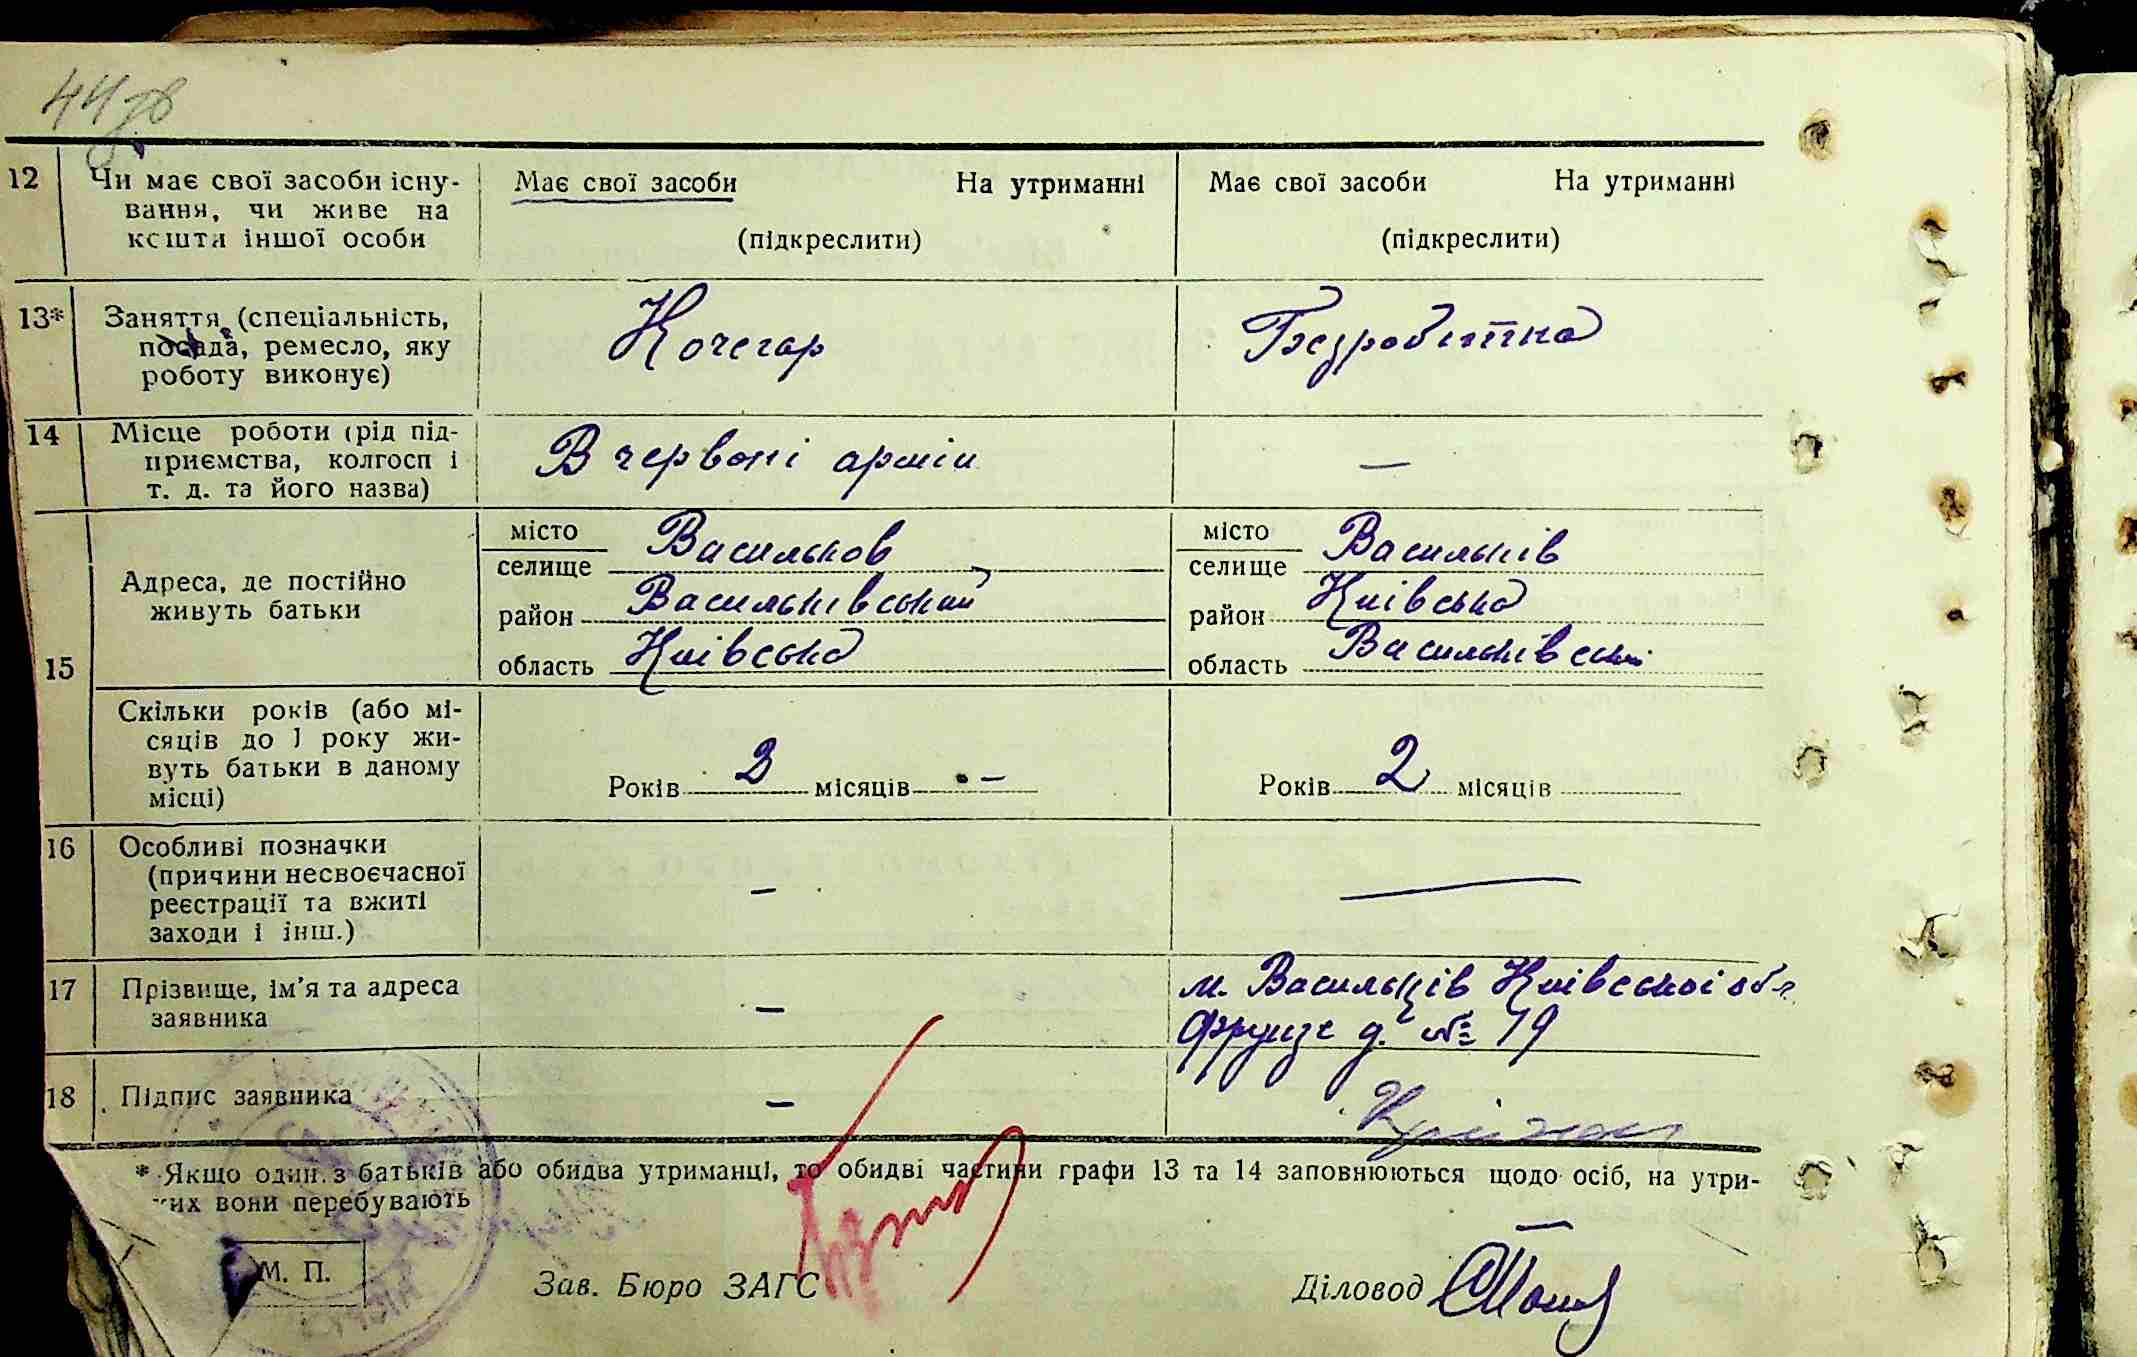 44 зв
12 Чи має свої засоби існу- Має свої засоби На утриманні Має свої засоби На утриманні
вання, чи живе на
кешти іншої особи (підкреслити) (підкреслити)
13* Заняття (спеціальність, Кочегар Безробітна
посада, ремесло, яку
роботу виконує)
14 Місце роботи (рід під- В червоні армии —
приємства, колгосп і
т. д. та його назва)
15 Адреса, де постійно
живуть батьки
місто Васильков місто Васильків
селище селище
район Васильківський район Київська
область Київська область Васильківський
Скільки років (або мі-
сяців до 1 року жи-
вуть батьки в даному Років 3 місяців — Років 2 місяців
місці)
16 Особливі позначки
(причини несвоєчасної — —
реєстрації та вжиті
заходи і інш.)
17 Прізвище, ім'я та адреса — м. Васильків Київської обл
заявника Фрунзе д. № 19
18 Підпис заявника —
* Якщо один з батьків або обидва утриманці, то обидві частини графи 13 та 14 заповнюються щодо осіб, на утри-
их вони перебувають
М. П.
Зав. Бюро ЗАГС Діловод